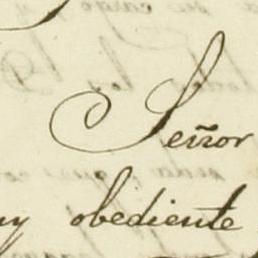 Señor
uy obediente